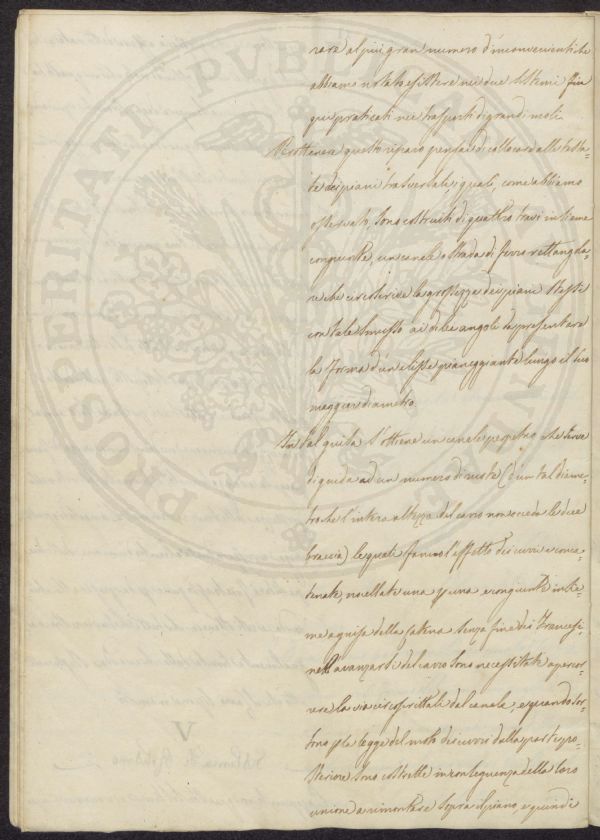 rare al più gran numero d'inconvenienti che
abbiamo notato esistere nei due sistemi fin
qui praticati nei trasporti di grandi moli.
Per ottenere questo riparo pensai di collocare alle testa=
te dei piani trasversali, i quali, come abbiamo
osservato, sono costruiti di quattro travi insieme
congiunte, un canale o strada di ferro rettangola=
re che circoscrive la grossezza dei piani stessi
con tale smusso ai di lei angoli da presentare
la forma d'un elisse pianeggiante lungo il suo
maggior diametro.
In tal guisa s'ottiene un canale perpetuo che serve
di guida ad un numero di ruote (d'un tal diame=
tro che l'intera altezza del carro non ecceda le due
braccia) le quali fanno l'effetto di curri e conca=
tenate, novellate una ad una e congiunte insie=
me a guisa della catena senza fine dei Francesi,
nell'avanzarsi del carro sono necessitate a percor=
rere la via circoscrittale dal canale, e quando sor=
tono per legge del moto dei curri dalla parte po=
steriore sono costrette in conseguenza della loro
unione a rimontare sopra il piano, e quindi
PROSPERITATI PUBLICAE
V